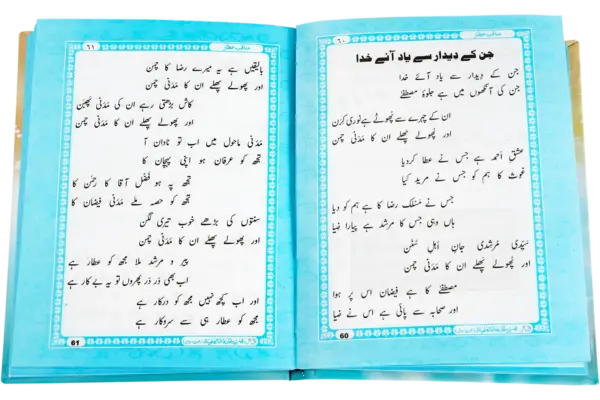 مناقب عطار
۶۰
جن کے دیدار سے یاد آئے خدا
جن کے دیدار سے یاد آئے خدا
جن کی آنکھوں میں ہے جلوۂ مصطفٰے
ان کے چہرے سے پھوٹے ہے نوری کرن
اور پھولے پھلے ان کا مَدَنی چمن
عشقِ احمد ہے جس نے عطا کر دیا
غوث کا ہم کو جس نے مرید کیا
جس نے مسلک رضا کا ہے ہم کو دیا
ہاں وہی جس کا مرشد ہے پیارا ضیا
سیّدی مُرشدی جانِ اہلِ سُنَن
اور پھولے پھلے ان کا مَدَنی چمن
مصطفٰے کا ہے فیضان اس پر ہوا
اور صحابہ سے پائی ہے اس نے ضیا
60
مناقب عطار
۶۱
بالیقیں ہے یہ میرے رضا کا چمن
اور پھولے پھلے ان کا مَدَنی چمن
کاش بڑھتی رہے ان کی مَدَنی پھبن
اور پھولے پھلے ان کا مَدَنی چمن
مَدَنی ماحول میں اب تو نادان آ
تجھ کو عرفان ہو اپنی پہچان کا
تجھ پہ ہو فضل آقا کا رحمٰن کا
تجھ کو حصہ ملے مَدَنی فیضان کا
سنتوں کی بڑھے خوب تیری لگن
اور پھولے پھلے ان کا مَدَنی چمن
پیر و مرشد ملا مجھ کو عطار ہے
اب بھی دَر دَر پھروں تو یہ بے کار ہے
اور اب کچھ نہیں مجھ کو درکار ہے
مجھ کو عطار ہی سے سروکار ہے
61